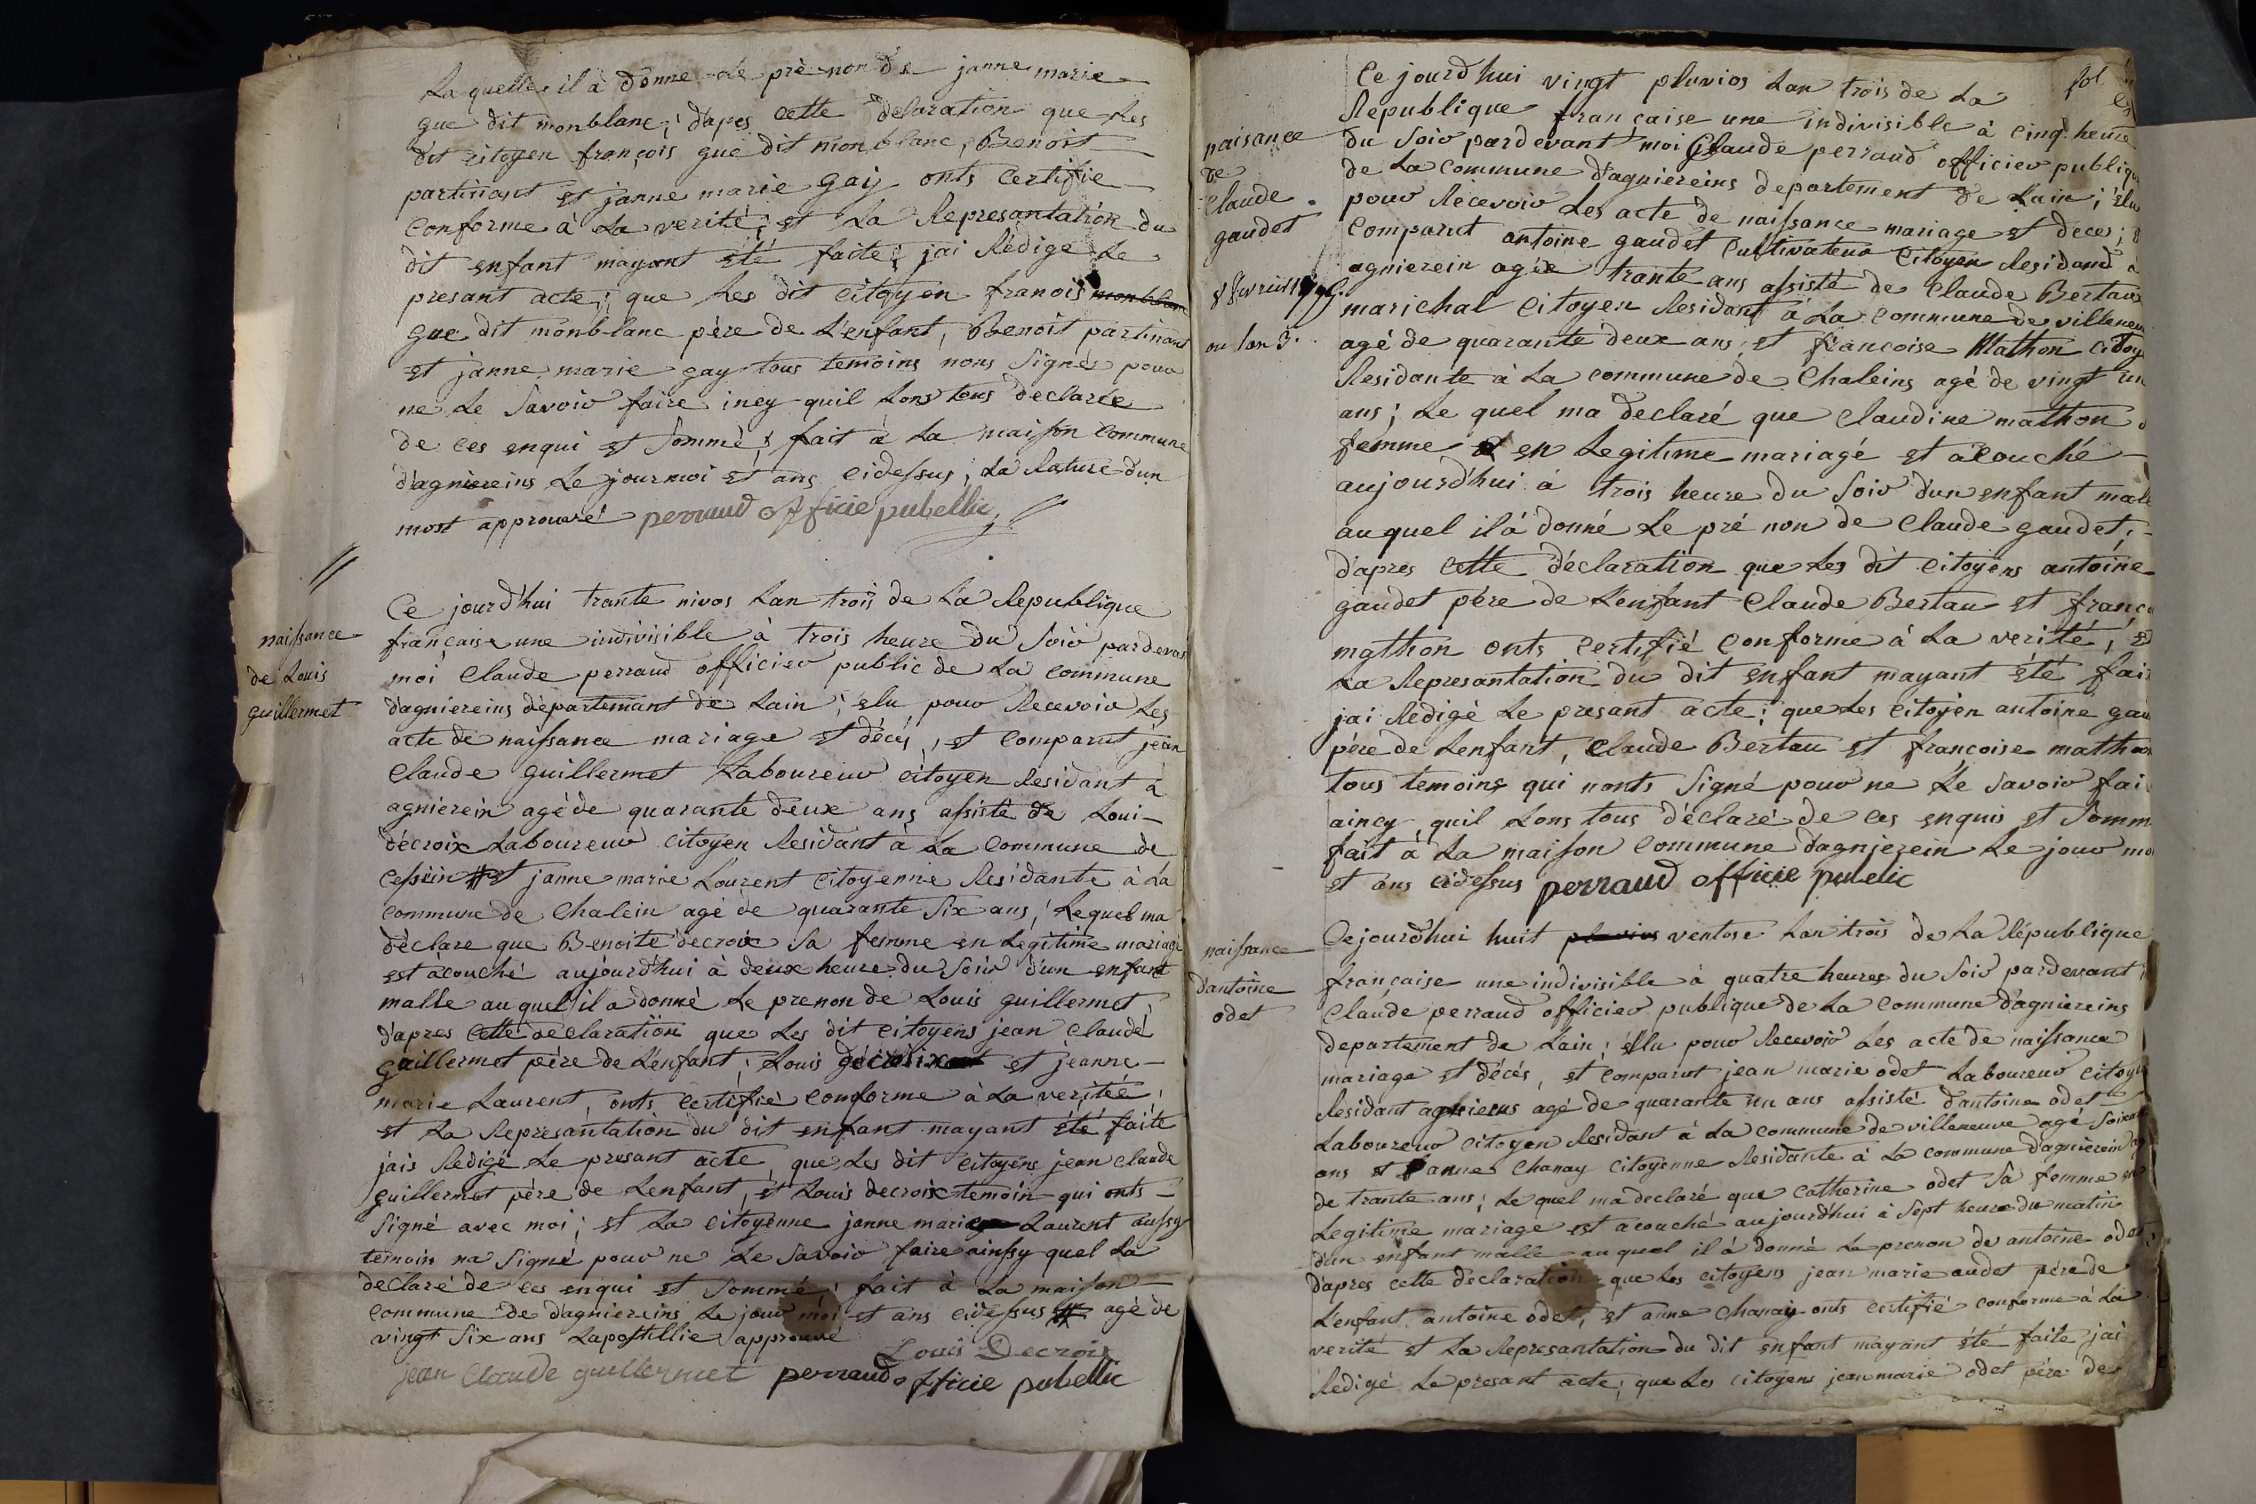 Laquelle il à donne le pre non de janne marie
gue dit monblanc; dapes cette delaration que les
dit citoyen françois gue dit monblanc, Benoit
partinant et janne marie gay onts certifie
conforme à la verité; et la Represantation du
dit enfant mayant été faite; jai Rédige Le
presant acte; que les dit citoyen franois monblanc
gue dit monblanc pére de Lenfant, Benoit partinant
et janne marie gay tous temoins nons Signés pour
ne le Savoir faire incy quil Lons tous déclarée
de ces enqui et Sommé; fait à la maison commune
d'agniereins le jour moi et ans cidessus; la Rature dun
most approuvé perraud officie pubellic
naissance
de Louis
guillermet
Ce jourd'hui trante nivos Lan trois de La Republique
française une indivisible à trois heure du Soir pardevas
moi Claude perraud officier public de La commune
dagniereins départemant de Lain; élu pour Recevoir Les
acte de naissance mariage et décés, et comparut jean
Claude guillermet Laboureur citoyen Résidant à
agnierein agé de quarante deux ans assisté de Loui-
décroix Laboureur citoyen Residant à La commune de
cessein # et janne marie Lourent citoyenne Residante à La
commune de Chalein agé de quarante Six ans; Lequel ma
déclare que Benoite decroix Sa femme en Legitime mariagé
est àcouché aujourd'hui à deux heure du Soir d'un enfant
malle auquel il a donné Le prenon de Louis guillermet,
d'apres cette declaration que Les dit citoyens jean claudé
guillermet pére de Lenfant; Louis décroix et jeanne-
marie Laurent, onts certifié comforme à La veritée,
et La Represantation du dit enfant mayant été faite
jais Redigé Le presant acte, que Les dit citoyens jean claude
guillermet pére de Lenfant, et Louis decroix temoin qui onts-
Signé avec moi; et La citoyenne janne marie Laurent aussy
temoin na Signé pour ne Le Savoir faire ainssy quel La
declaré de ces enqui et Sommé; fait à La maison
commune de d'agniereins Le jour moi et ans cidessus # agé de
vingt Six ans Lapostillie approuvé
Louis Decroix
jean Claude guillermet perraud officie pubellic
fol
naisance
de
Claude
gaudet
ou lan 3.
Ce jourd'hui vingt pluvios Lan trois de La
Republique française une indivisible à cinq heure
du Soir pardevant moi Claude perraud officier publique
de La commune d'agniereins departement de Lain; élu
pour Récevoir Les acte de naissance mariage et deces;
Comparut antoine gaudet cultivateur citoyen Residand à
agnierein agée trante ans assisté de Claude Bertau
marichal citoyen Residant à La commune de villeneu
agé de quarante deux ans; et françoise Mathon citoy
Residante à La commune de Chaleins agé de vingt un
ans; Le quel ma declaré que Claudine mathon
femme en Legitime mariagé et àcouché
aujourd'hui à trois heure du Soir d'un enfant mall
auquel il à donné Le pré non de Claude gaudet;
d'apres cette déclaration que Les dit citoyens antoine
gaudet pére de Lenfant Claude Bertau et franço
mathon onts certifié conforme à La verité, et
La Represantation du dit enfant mayant été fai
jai Redigé Le presant acte; que Les citoyen antoine gau
pére de Lenfant, Claude Bertau et françoise mathon
tous temoins qui nonts Signé pour ne Le Savoir fai
aincy quil Lons tous déclaré de ces enquis et Somm
fait à La maison commune dagnierein Le jour mo
et ans cidessus perraud officie pubelic
naissance
dantoine
odet
Cejourd'hui huit pluvios ventose Lan trois de La République
française une indivisible à quatre heures du Soir pardevant
Claude perraud officier publique de La commune d'agniereins
departement de Lain; éllu pour Recevoir Les acte de naissance
mariage et décés, et comparut jean marie odet Laboureur citoye
Residant agniereins agé de quarante un ans assisté d'antoine odet
Laboureur citoyen Residant à La commune de villeneuve agé Soixante
ans et anne Chanay citoyenne Residante à La commune d'agnierein
de trante ans; Le quel ma declaré que Catherine odet Sa femme en
Legitime mariage est acouché aujourd'hui à Sept heure du matin
d'un enfant malle auquel il à donné Le prenon de antoine odet
d'apres cette declaration que Les citoyens jean marie audet pére de
Lenfant antoine odet, et anne Chanay onts certifié conforme à La
verité et La Represantation du dit enfant mayant été faite jai
Rédigé Le presant acte; que Les citoyens jean marie odet pére de